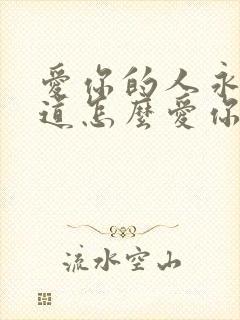 愛你的人永
道怎麼愛你
流水空山